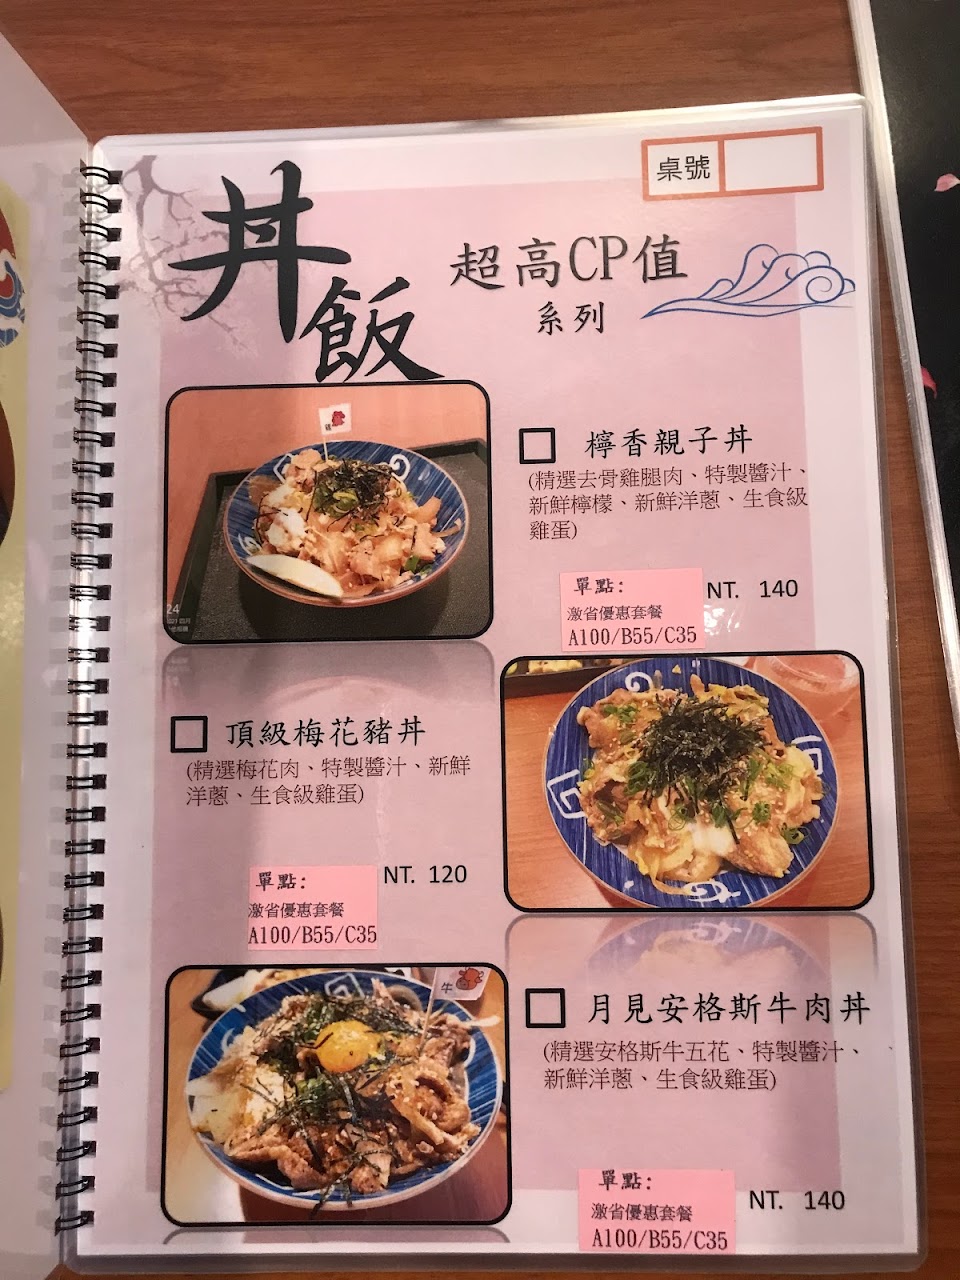 桌號
丼飯
超高CP值
系列
雞
檸香親子丼
(精選去骨雞腿肉、特製醬汁、
新鮮檸檬、新鮮洋蔥、生食級
雞蛋)
單點: NT. 140
激省優惠套餐
A100/B55/C35
24
頂級梅花豬丼
(精選梅花肉、特製醬汁、新鮮
洋蔥、生食級雞蛋)
單點: NT. 120
激省優惠套餐
A100/B55/C35
牛
月見安格斯牛肉丼
(精選安格斯牛五花、特製醬汁、
新鮮洋蔥、生食級雞蛋)
單點: NT. 140
激省優惠套餐
A100/B55/C35